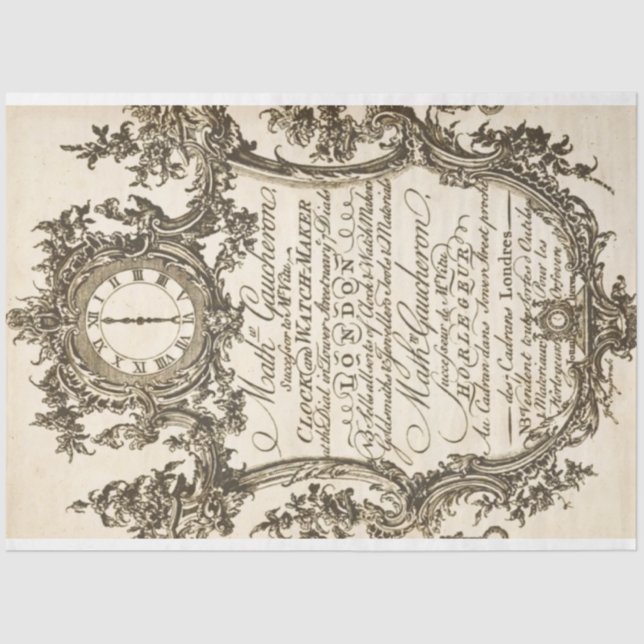 Math.w Gaucheron,
Successor to Mr Vitu
CLOCK & WATCH-MAKER
at the Dial in Tower Street near the 7 Dials
LONDON
NB Sells all sorts of Clock & Watch Makers
Goldsmiths & Jewellers Tools & Materials
Math.w Gaucheron,
Successeur de Mr Vitu
HORLOGEUR
Au Cadran dans Tower Street proche
des 7 Cadrans Londres
NB Vendent toutes sortes d'Outils
et Materiaux Pour les
Horlogeurs
Orfevres